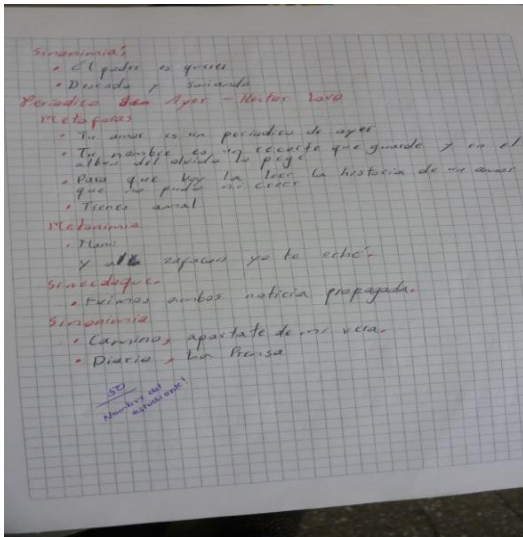 Sinonimia:
• El poder es querer
• Deseada y
Periodico de Ayer - Hector Lavo
Metaforas
• Tu amor es un periodico de ayer
• Tu nombre es un recorte que guarde y en el
album del olvido lo pegé
• Para que voy la leer la historia de un amor
que no pudo ni creer
• Tienes
Metonimia
y zafacon yo te eché.
Sinecdoque.
• Fuimos ambos noticia propagada.
Sinonimia
• Camino, apartate de mi vera.
• Diario, La Prensa
50
Nombre del
estudiante!